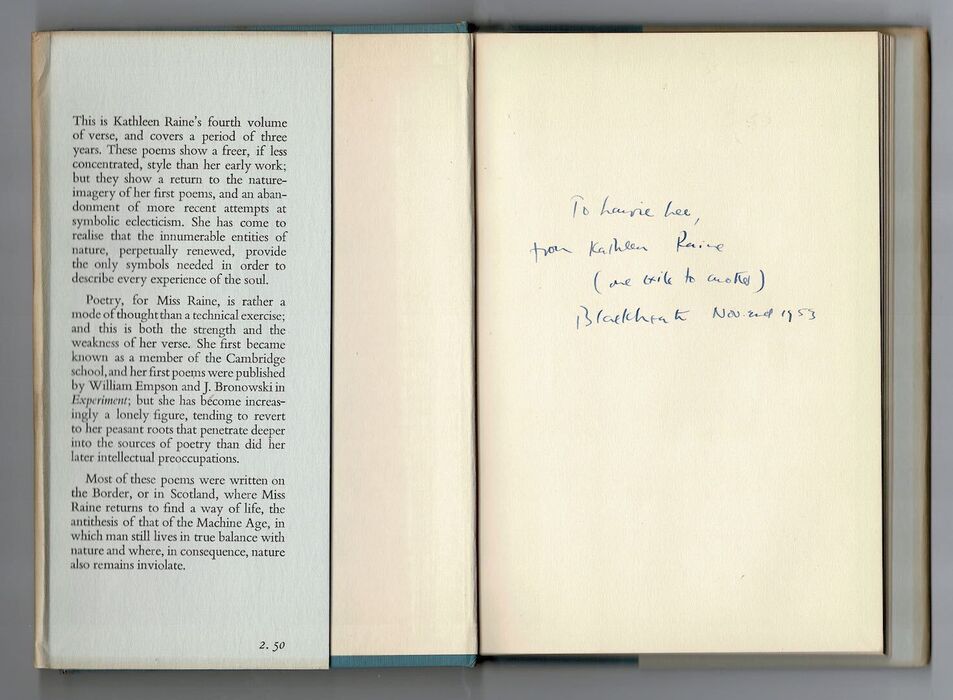 This is Kathleen Raine's fourth volume
of verse, and covers a period of three
years. These poems show a freer, if less
concentrated, style than her early work;
but they show a return to the nature-
imagery of her first poems, and an aban-
donment of more recent attempts at
symbolic eclecticism. She has come to
realise that the innumerable entities of
nature, perpetually renewed, provide
the only symbols needed in order to
describe every experience of the soul.
Poetry, for Miss Raine, is rather a
mode of thought than a technical exercise;
and this is both the strength and the
weakness of her verse. She first became
known as a member of the Cambridge
school, and her first poems were published
by William Empson and J. Bronowski in
Experiment; but she has become increas-
ingly a lonely figure, tending to revert
to her peasant roots that penetrate deeper
into the sources of poetry than did her
later intellectual preoccupations.
Most of these poems were written on
the Border, or in Scotland, where Miss
Raine returns to find a way of life, the
antithesis of that of the Machine Age, in
which man still lives in true balance with
nature and where, in consequence, nature
also remains inviolate.
2. 50
To Laurie Lee,
from Kathleen Raine
(one exile to another)
Blackheath Nov. 2nd 1953